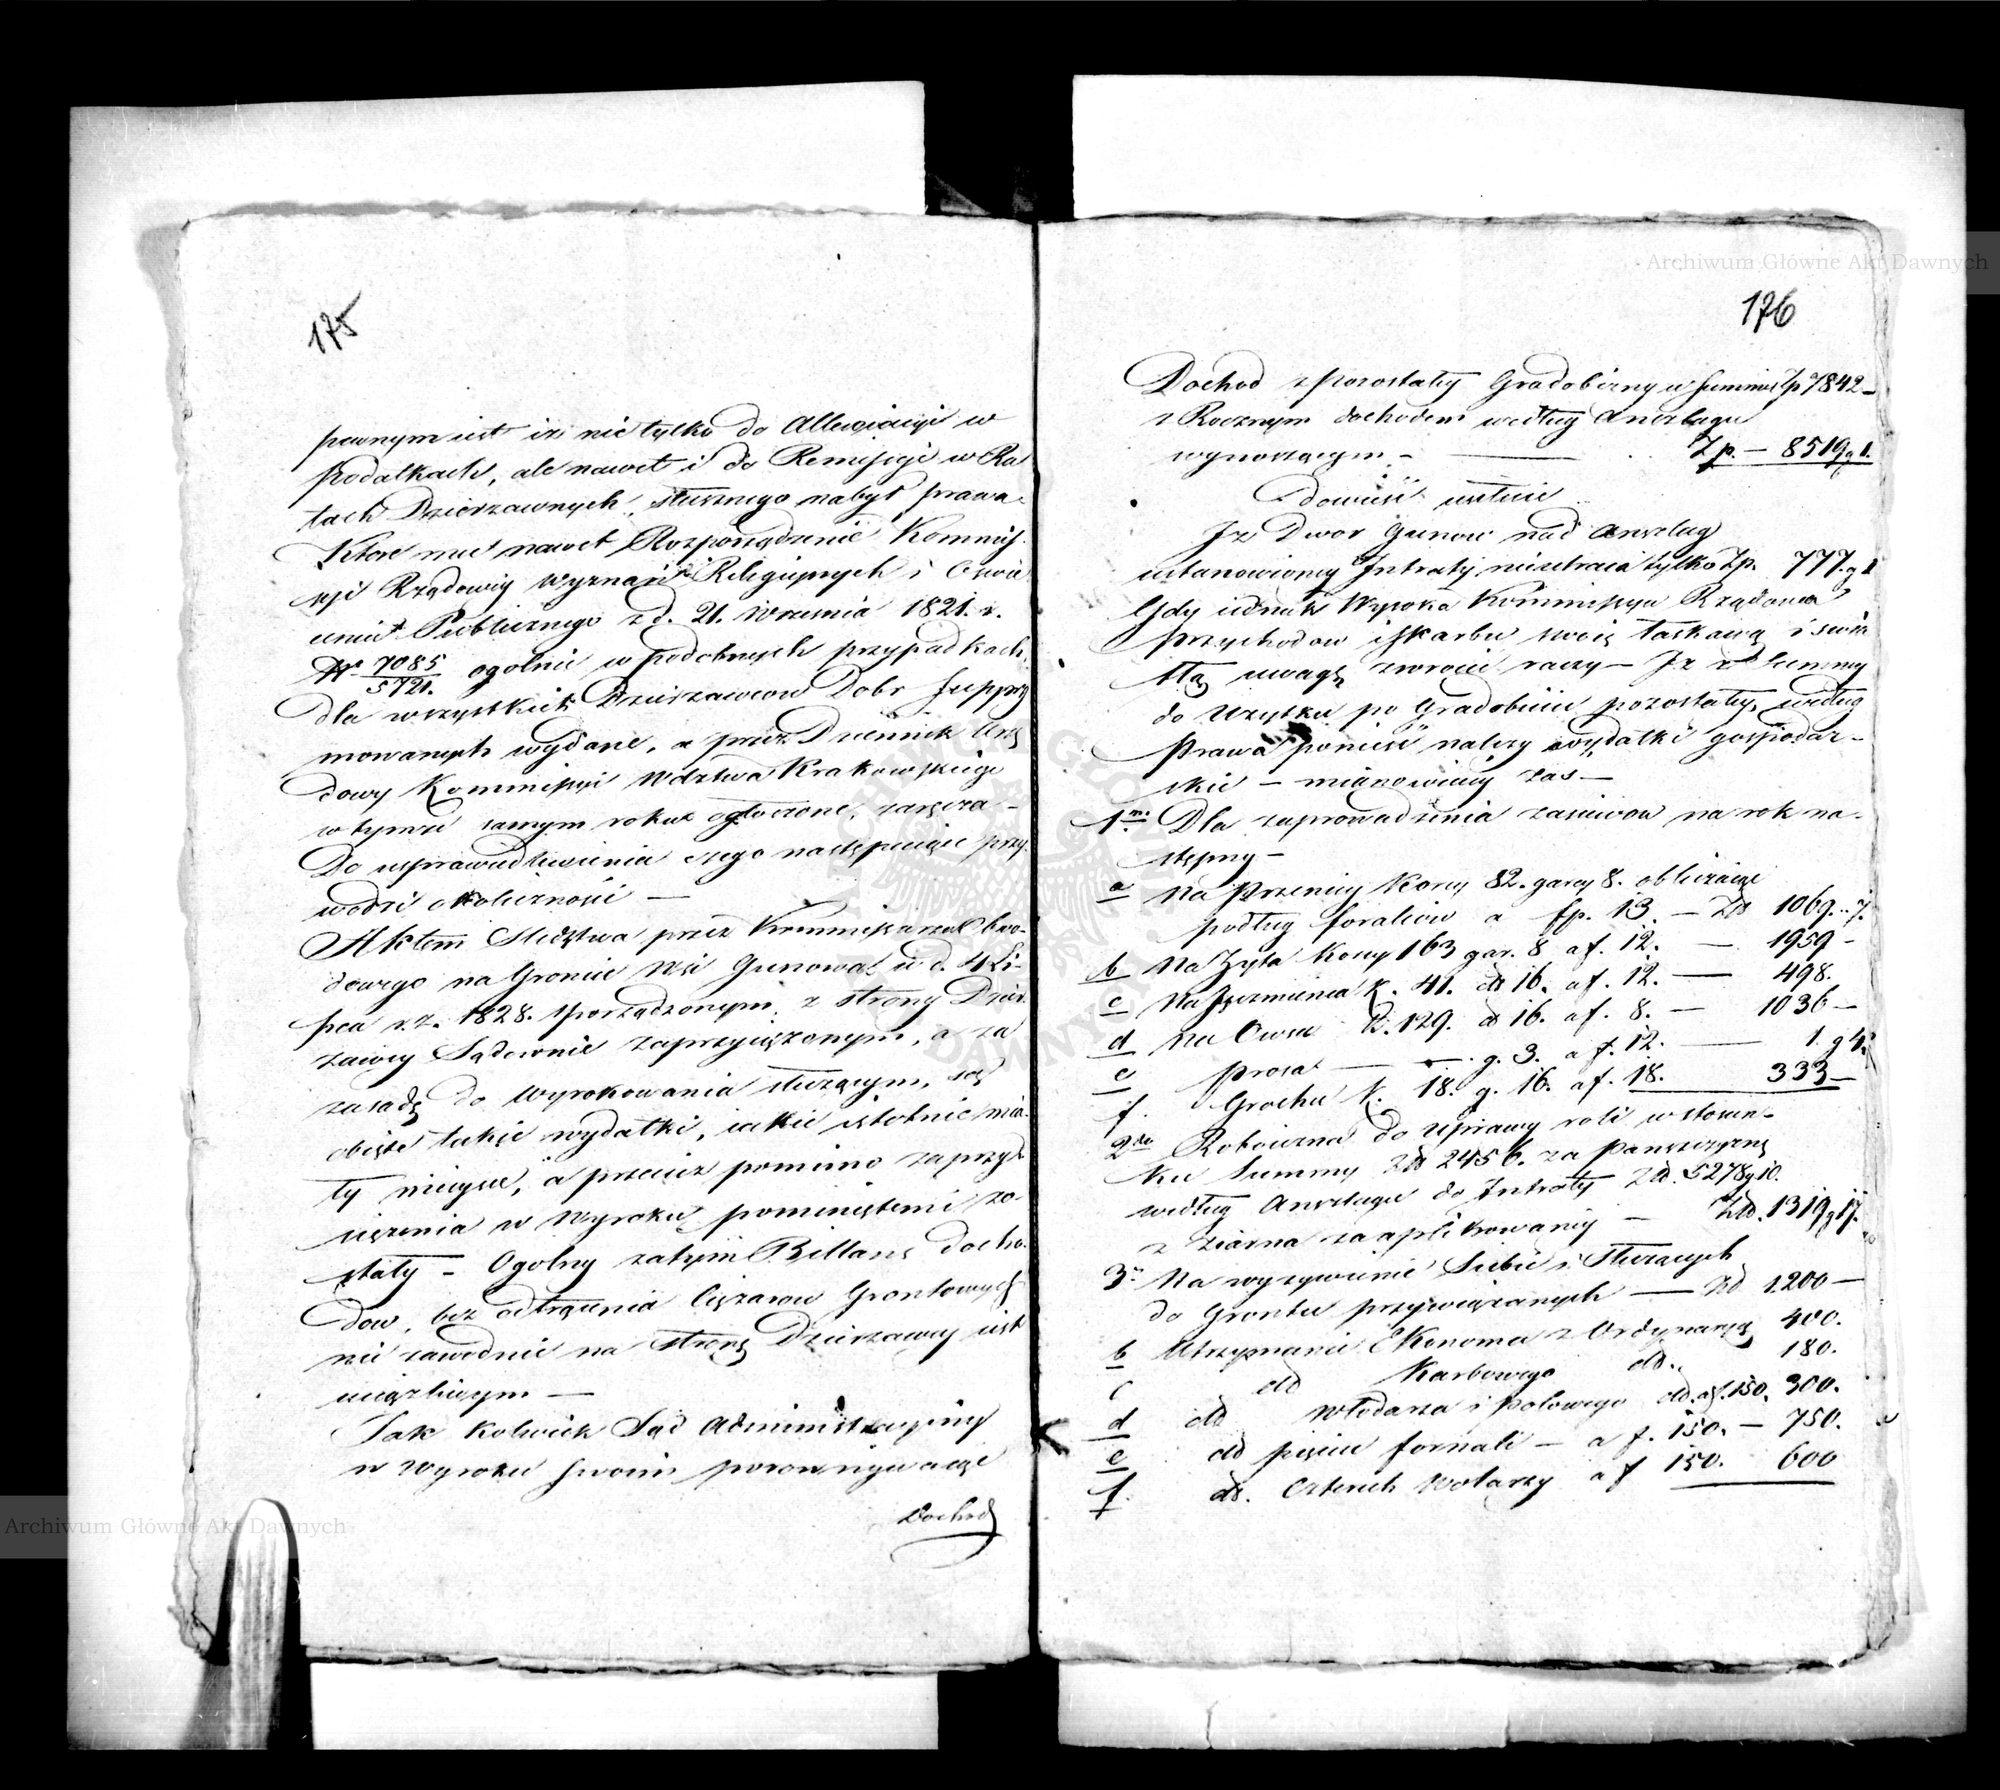 175
pewnym iest iż nie tylko do Allewiacyi w
podatkach, ale nawet i do Remissyi w Ra
tach Dzierżawnych, słusznego nabył prawa
Które mu nawet Rozporządzenie Kommis
syi Rządowey Wyznań Religiynych i Oswie
cenia Publicznego z d. 21. Września 1821. r.
Nr 7085/5721. ogolnie w podobnych przypadkach
dla wszystkich Dzierżawcow Dobr Suppry
mowanych wydane, a przez Dziennik Urzę
dowy Kommissyi Wdztwa Krakowskiego
w tymże samym roku ogłoszone, zaręcza –
Do usprawiedliwienia czego następuiące przy
wodzi okoliczności —
Aktem Sledztwa przez Kommissarza Obwo-
dowego na Groncie Wsi Gunowa w d. 4 Li-
pca r. z. 1828. sporządzonym, z strony Dzier
zawcy Sądownie zaprzysiężonym, a za
zasadę do Wyrokowania służącym, są
obięte takie wydatki, iakie istotnie mia
ły mieysce, a przecież pomimo zaprzysi
ężenia w Wyroku pominiętemi zo
stały – Ogolny zatym Billans docho
dow, bez odtrącenia Ciężarow Grontowych
nie zawodnie na stronę Dzierzawcy iest
uciążliwym —
Jak kolwiek Sąd Administracyiny
w Wyroku swoim porownywaiąc
Dochod
176
Dochod z pozostałey Gradobiczny w Summie Zp 7842 –
z Rocznym dochodem według Anszlagu
wynoszącym – Zp. – 8519 g 1.
dowieść usiłuie
Iz Dwor Gunow nad Anszlag
ustanowioney Intraty nieutracił tylko Zp. 777. g 1
Gdy iednak Wysoka Kommissya Rządowa
Przychodow i Skarbu swoię łaskawą i świa
tłą uwagę zwrocić raczy – Iz z Summy
do Użytku po Gradobiciu pozostałey, według
Prawa ponieść należy wydatki gospodar –
skie – mianowicie zas –
1mo Dla zaprowadzenia zasiewow na rok na-
stępny –
a Na Pszenicy Korcy 82. garcy 8. obliczaiąc
podług foraliow a fp. 13. – Zł 1069. 7.
b Na Żyta Korcy 163 gar. 8 a f. 12. — 1959 –
c Na Jęczmienia K. 41. d 16. a f. 12. — 498.
d Na Owsa K. 129. d 16. a f. 8. — 1036 –
e prosa — g. 3. a f. 12. — 1. g 4.
f. Grochu K. 18. g. 16. a f. 18. 333 –
2do Robocizna do Uprawy roli w stosun-
ku Summy Zł 2456. za Pańszczyznę
według Anszlagu do Intraty Zł. 5278 g 10.
z ziarna zaaplikowaney – Złd. 1319 g 17.
3o Na wyżywienie Siebie i Służących
do Grontu przywiązanych — Zł 1200 –
b Utrzymanie Ekonoma z Ordynaryą 400.
c dd Karbowego dd. 180.
d dd Włodarza i polowego dd. a f. 150. 300.
e dd pięciu fornali – a f. 150. – 750.
f. dd. Czterech Wolarzy a f 150. 600
Archiwum Główne Akt Dawnych
Archiwum Główne Akt Dawnych